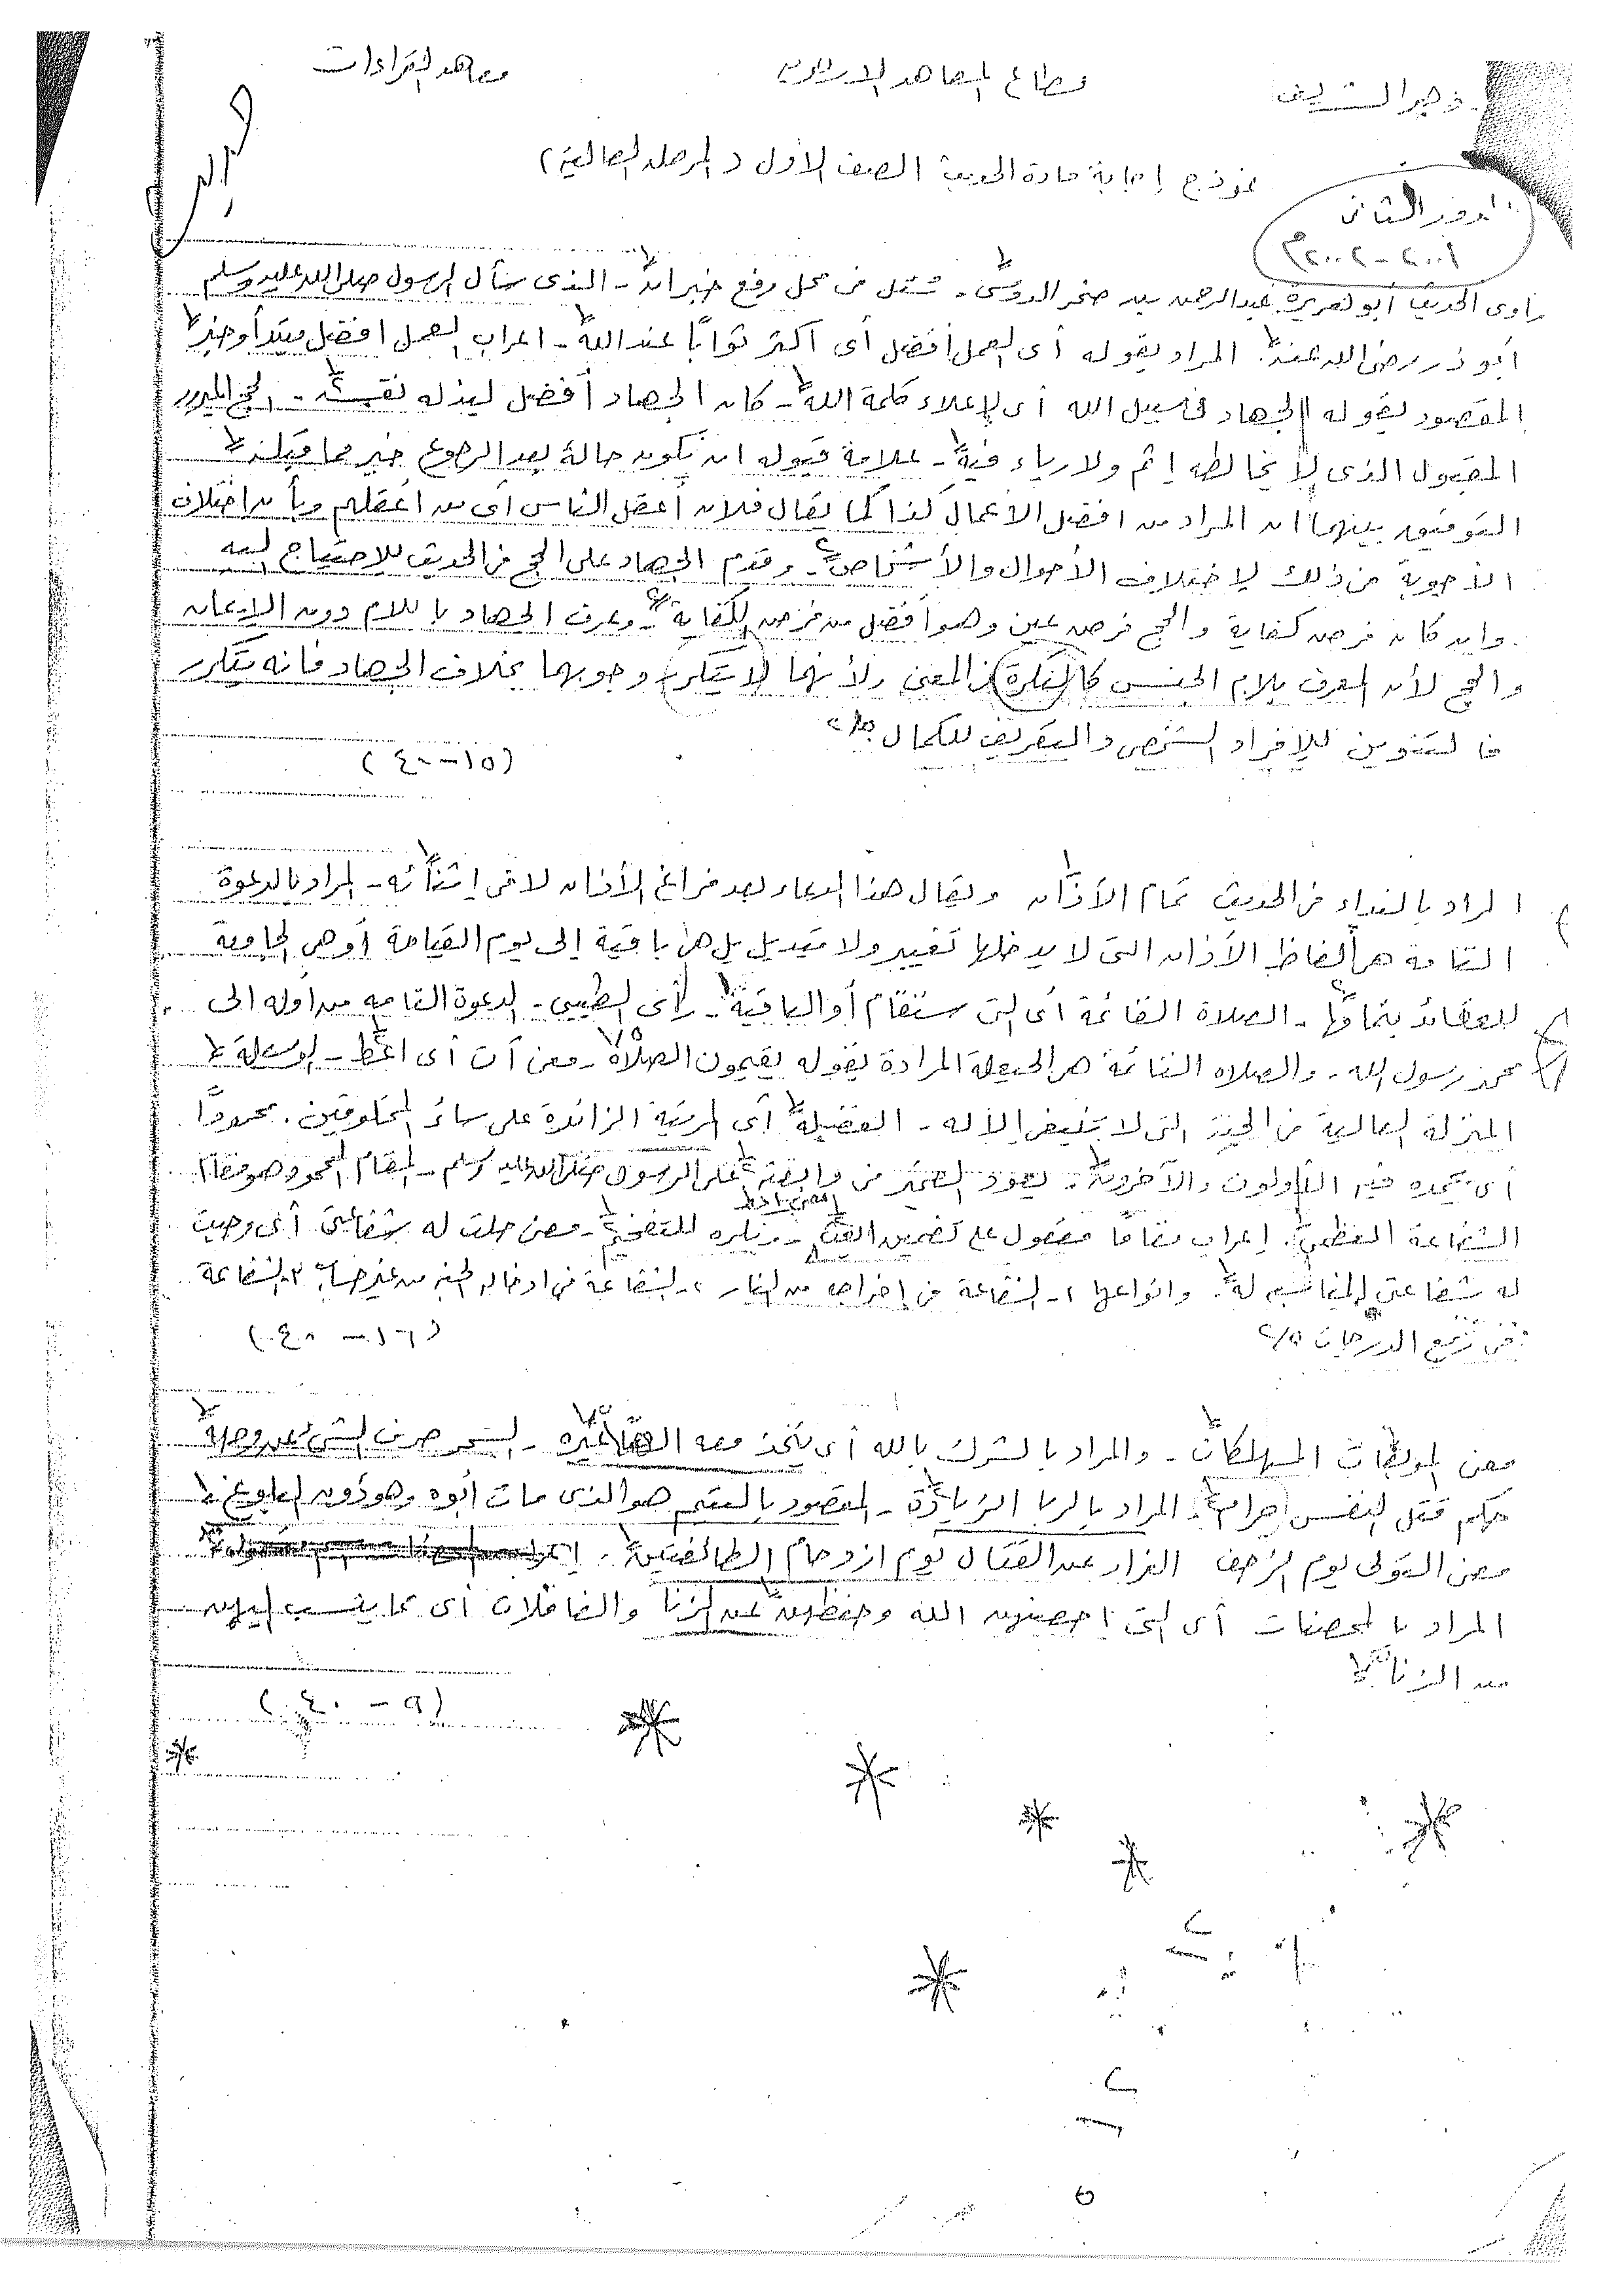 الأزهر الشريف
قطاع المعاهد الأزهرية
معاهد القراءات
نموذج إجابة مادة الحديث الصف الأول (المرحلة العالية)
الدور الثاني
٢٠٠١ - ٢٠٠٢م
راوى الحديث أبو هريرة عبد الرحمن بن صخر الدوسى - سئل فى محل رفع خبر ان - الذى سأل الرسول صلى الله عليه وسلم
أبو ذر رضى الله عنه. المراد بقوله أى العمل أفضل أى أكثر ثوابًا عند الله - اعراب العمل افضل مبتدأ وخبر
المقصود بقوله الجهاد فى سبيل الله أى لإعلاء كلمة الله - كان الجهاد أفضل لبذله نفسه - الحج المبرور
المقبول الذى لا يخالطه إثم ولا رياء فيه - علامة قبوله ان يكون حالة بعد الرجوع خير مما قبله
التوفيق بينهما ان المراد من افضل الأعمال كذا كما يقال فلان أعقل الناس أى من أعقلهم وبأن اختلاف
الأجوبة فى ذلك لاختلاف الأحوال والأشخاص - وقدم الجهاد على الحج فى الحديث للاحتياج إليه
وان كان فرض كفاية والحج فرض عين وهو أفضل من فرض الكفاية - وعرف الجهاد باللام دون الإيمان
والحج لأن المعرف بلام الجنس كالنكرة فى المعنى ولأنهما لا يتكرر وجوبهما بخلاف الجهاد فانه يتكرر
فالتنوين للإفراد الشخصى والتعريف للكمال
(١٥ - ٤٠)
المراد بالنداء فى الحديث تمام الأذان ويقال هذا الدعاء بعد فراغ الأذان لا فى إثنائه - المراد بالدعوة
التامة هى ألفاظ الأذان التى لا يدخلها تغيير ولا تبديل بل هى باقية إلى يوم القيامة أو هى الجامعة
للعقائد بتمامها - الصلاة القائمة أى التى ستقام أو الباقية - رأى الطيبى - الدعوة التامه من أوله الى
محمد رسول الله - والصلاه القائمة هى الحيعلة المرادة بقوله يقيمون الصلاة - معنى آت أى اعط - الوسيلة
المنزلة العالية فى الجنة التى لا تنبغى إلا له - الفضيلة أى المرتبة الزائدة على سائر المخلوقين. محمودًا
أى يحمده فيه الأولون والآخرون - يعود الضمير فى وابعثه على الرسول صلى الله عليه وسلم - المقام المحمود هو مقام
الشفاعة العظمى. إعراب مقامًا مفعول على تضمين ابعث معنى اعط - ونكره للتفخيم - معنى حلت له شفاعتى أى وجبت
له شفاعتى المناسبه له. وانواعها ١- الشفاعة فى إخراجه من النار ٢- الشفاعة فى ادخاله الجنة من غير حساب ٣- الشفاعة
فى رفع الدرجات
(١٦ - ٤٠)
معنى الموبقات المهلكات - والمراد بالشرك بالله أى يتخذ معه إلهًا غيره - السحر صرف الشئ عن وجهه
حكم قتل النفس حرام. المراد بالربا الزيادة - المقصود باليتيم هو الذى مات أبوه وهو دون البلوغ
معنى التولى يوم الزحف الفرار عن القتال يوم ازدحام الطائفتين.
المراد بالمحصنات أى التى احصنهن الله وحفظهن عن الزنا والغافلات أى عما ينسب إليهن
من الزنا
(٩ - ٤٠)